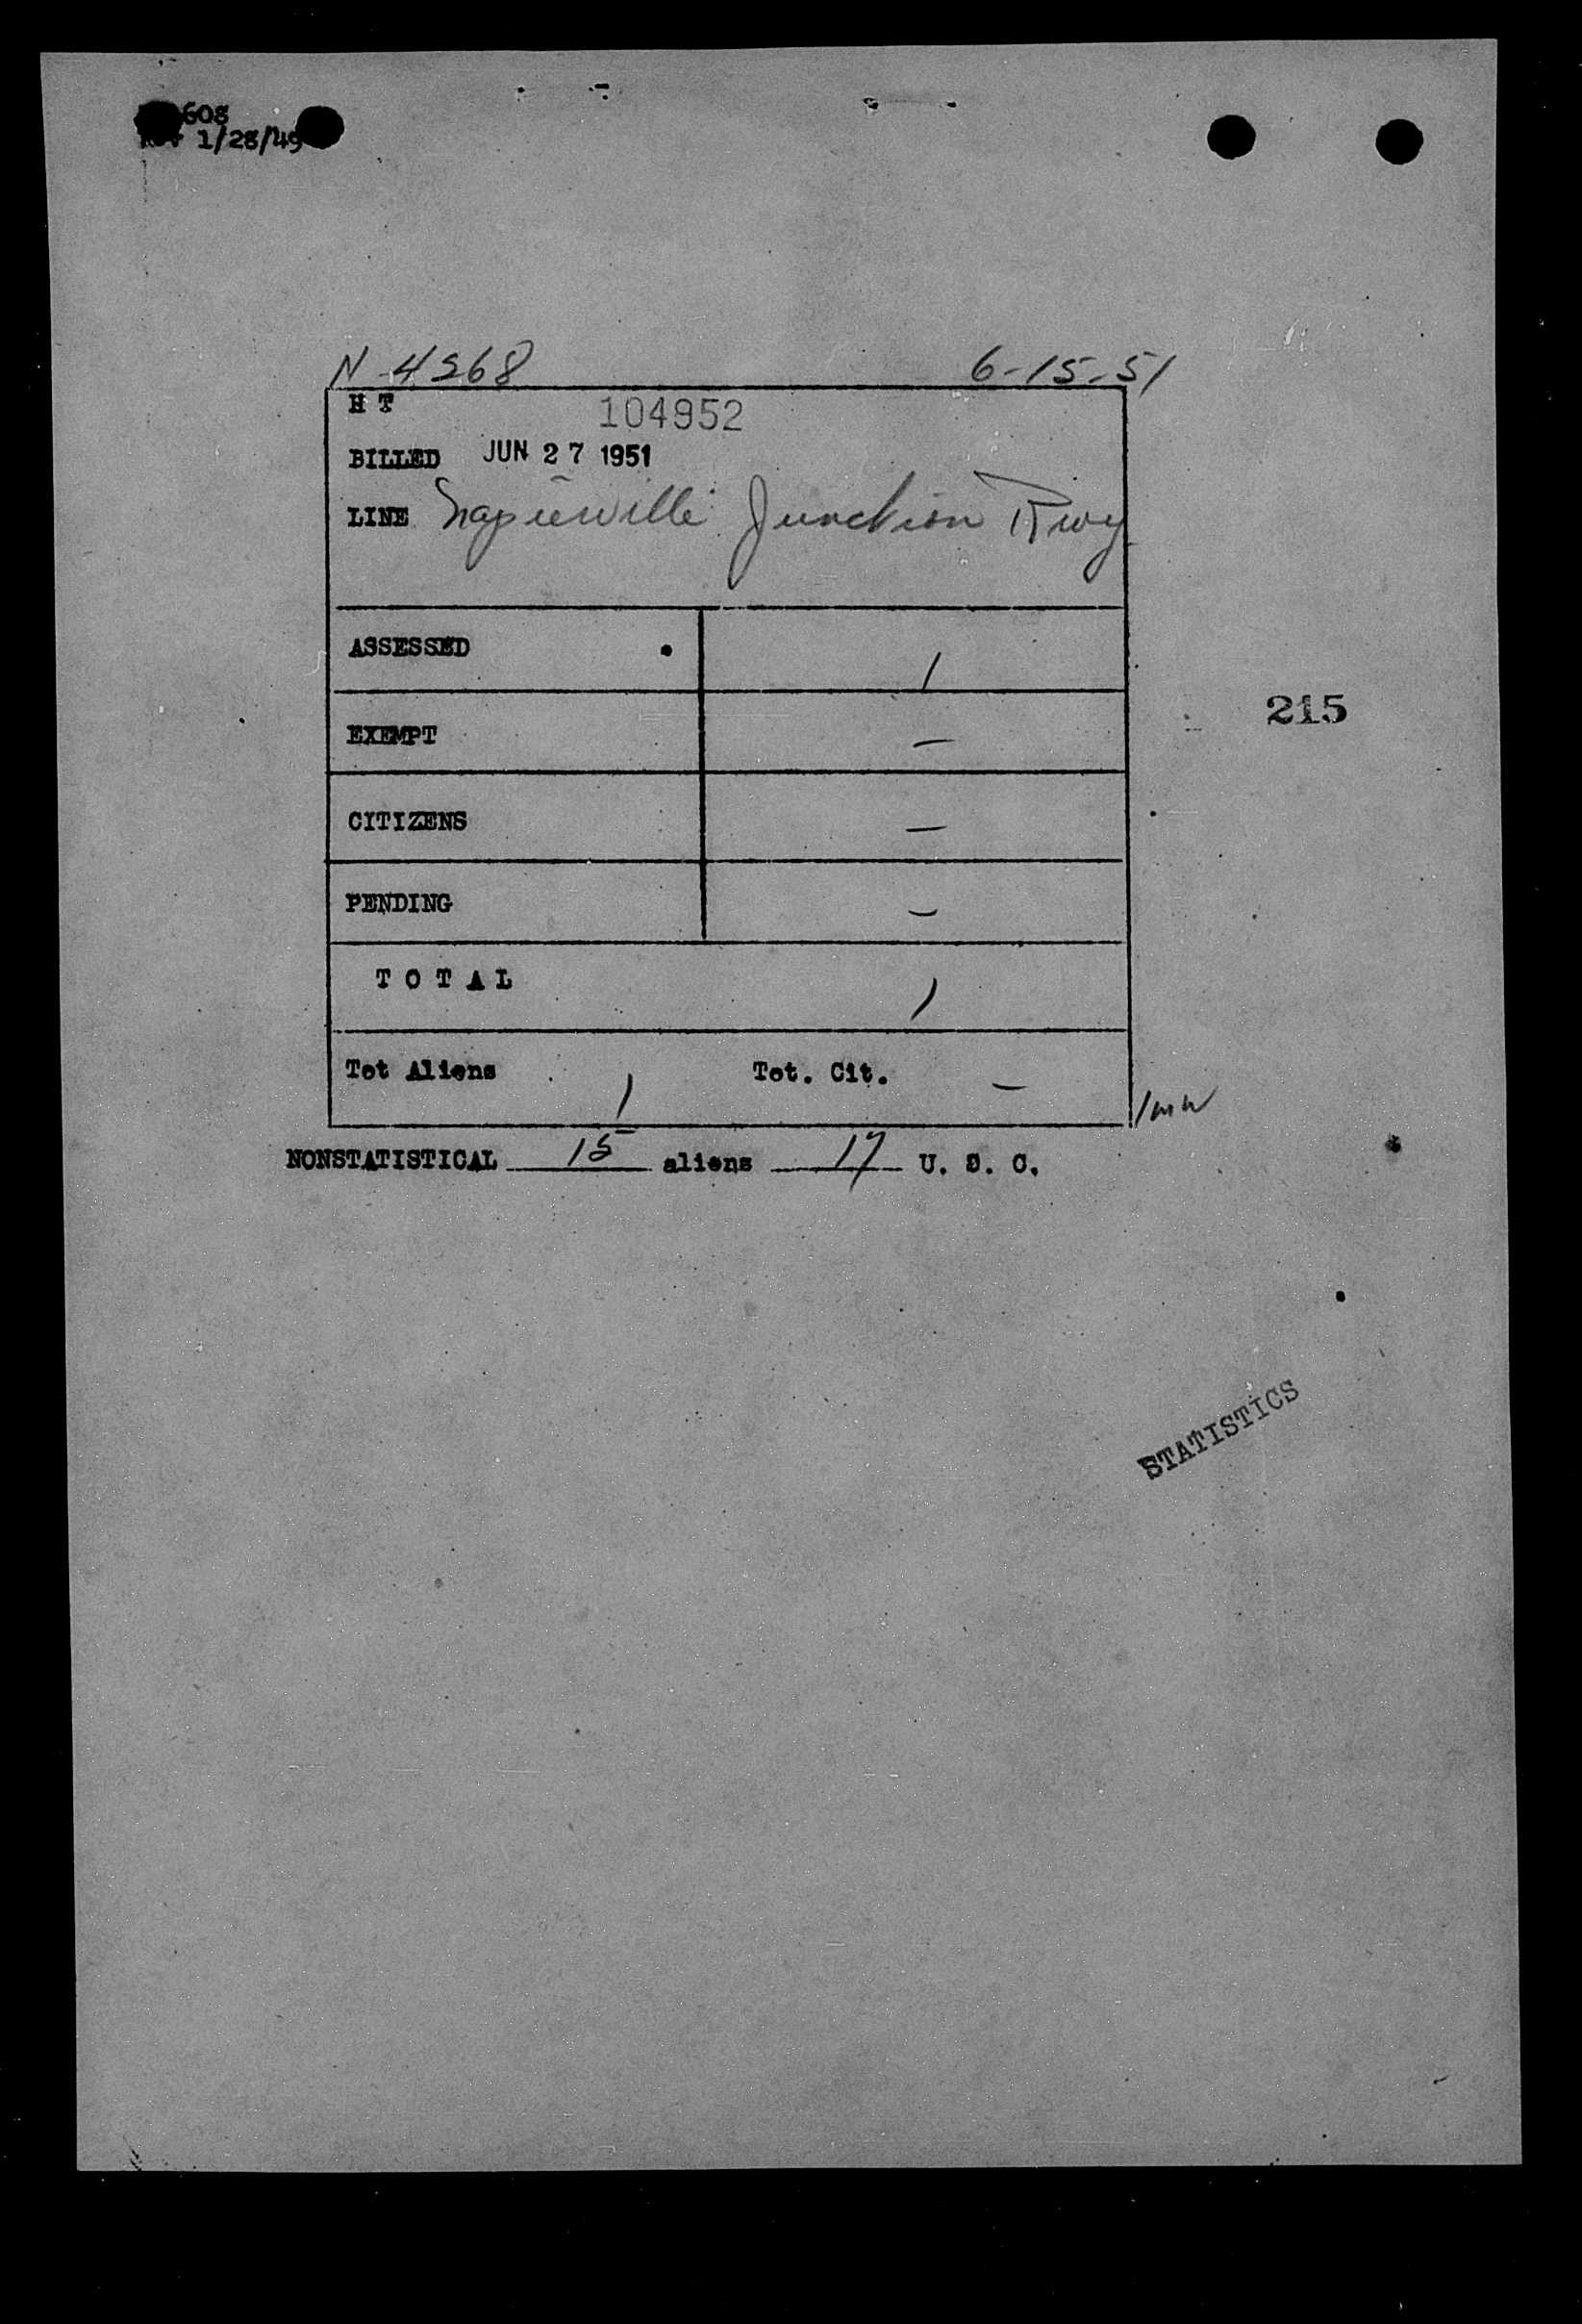 608
1/28/49
N-4568 6-15-51
H T 104952
BILLED JUN 27 1951
LINE Napierville Junction Rwy
ASSESSED 1
215
EXEMPT —
CITIZENS —
PENDING —
T O T A L 1
Tot Aliens 1 Tot. Cit. —
/mw
NONSTATISTICAL 15 aliens 17 U. S. C.
STATISTICS